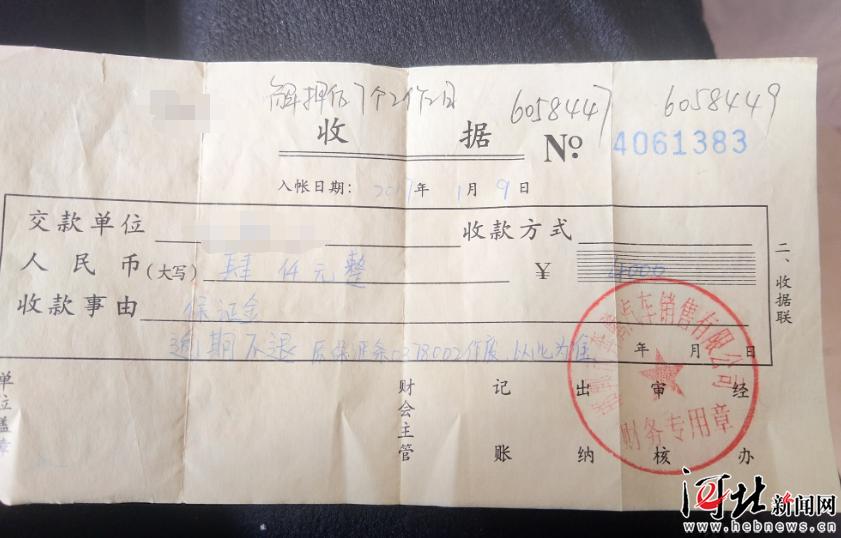 解押后7个工作日 6058447 6058449
收 据 No. 4061383
入帐日期: 2017年 1月 9日
交款单位 收款方式
人民币(大写) 肆仟元整 ¥ 4000
收款事由 保证金
逾期不退 原保证条0378002作废,以此为准 年 月 日
二、收据联
汽车销售有限公司
财务专用章
单位盖章 财会主管 记账 出纳 审核 经办
河北新闻网
www.hebnews.cn